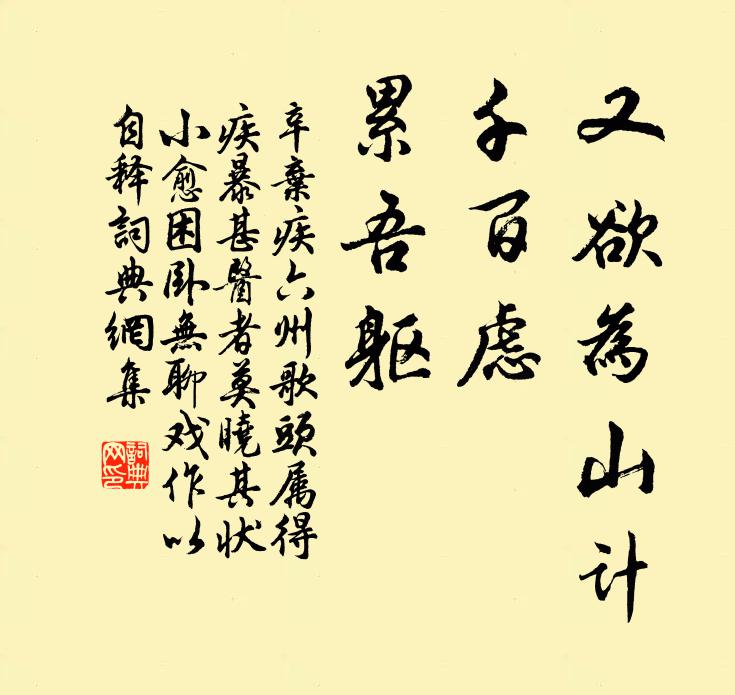 又欲為山計
千百慮
累吾軀
辛棄疾六州歌頭属得
疾暴甚醫者莫曉其狀
小愈困卧無聊戏作以
自释詞典網集
詞典网印